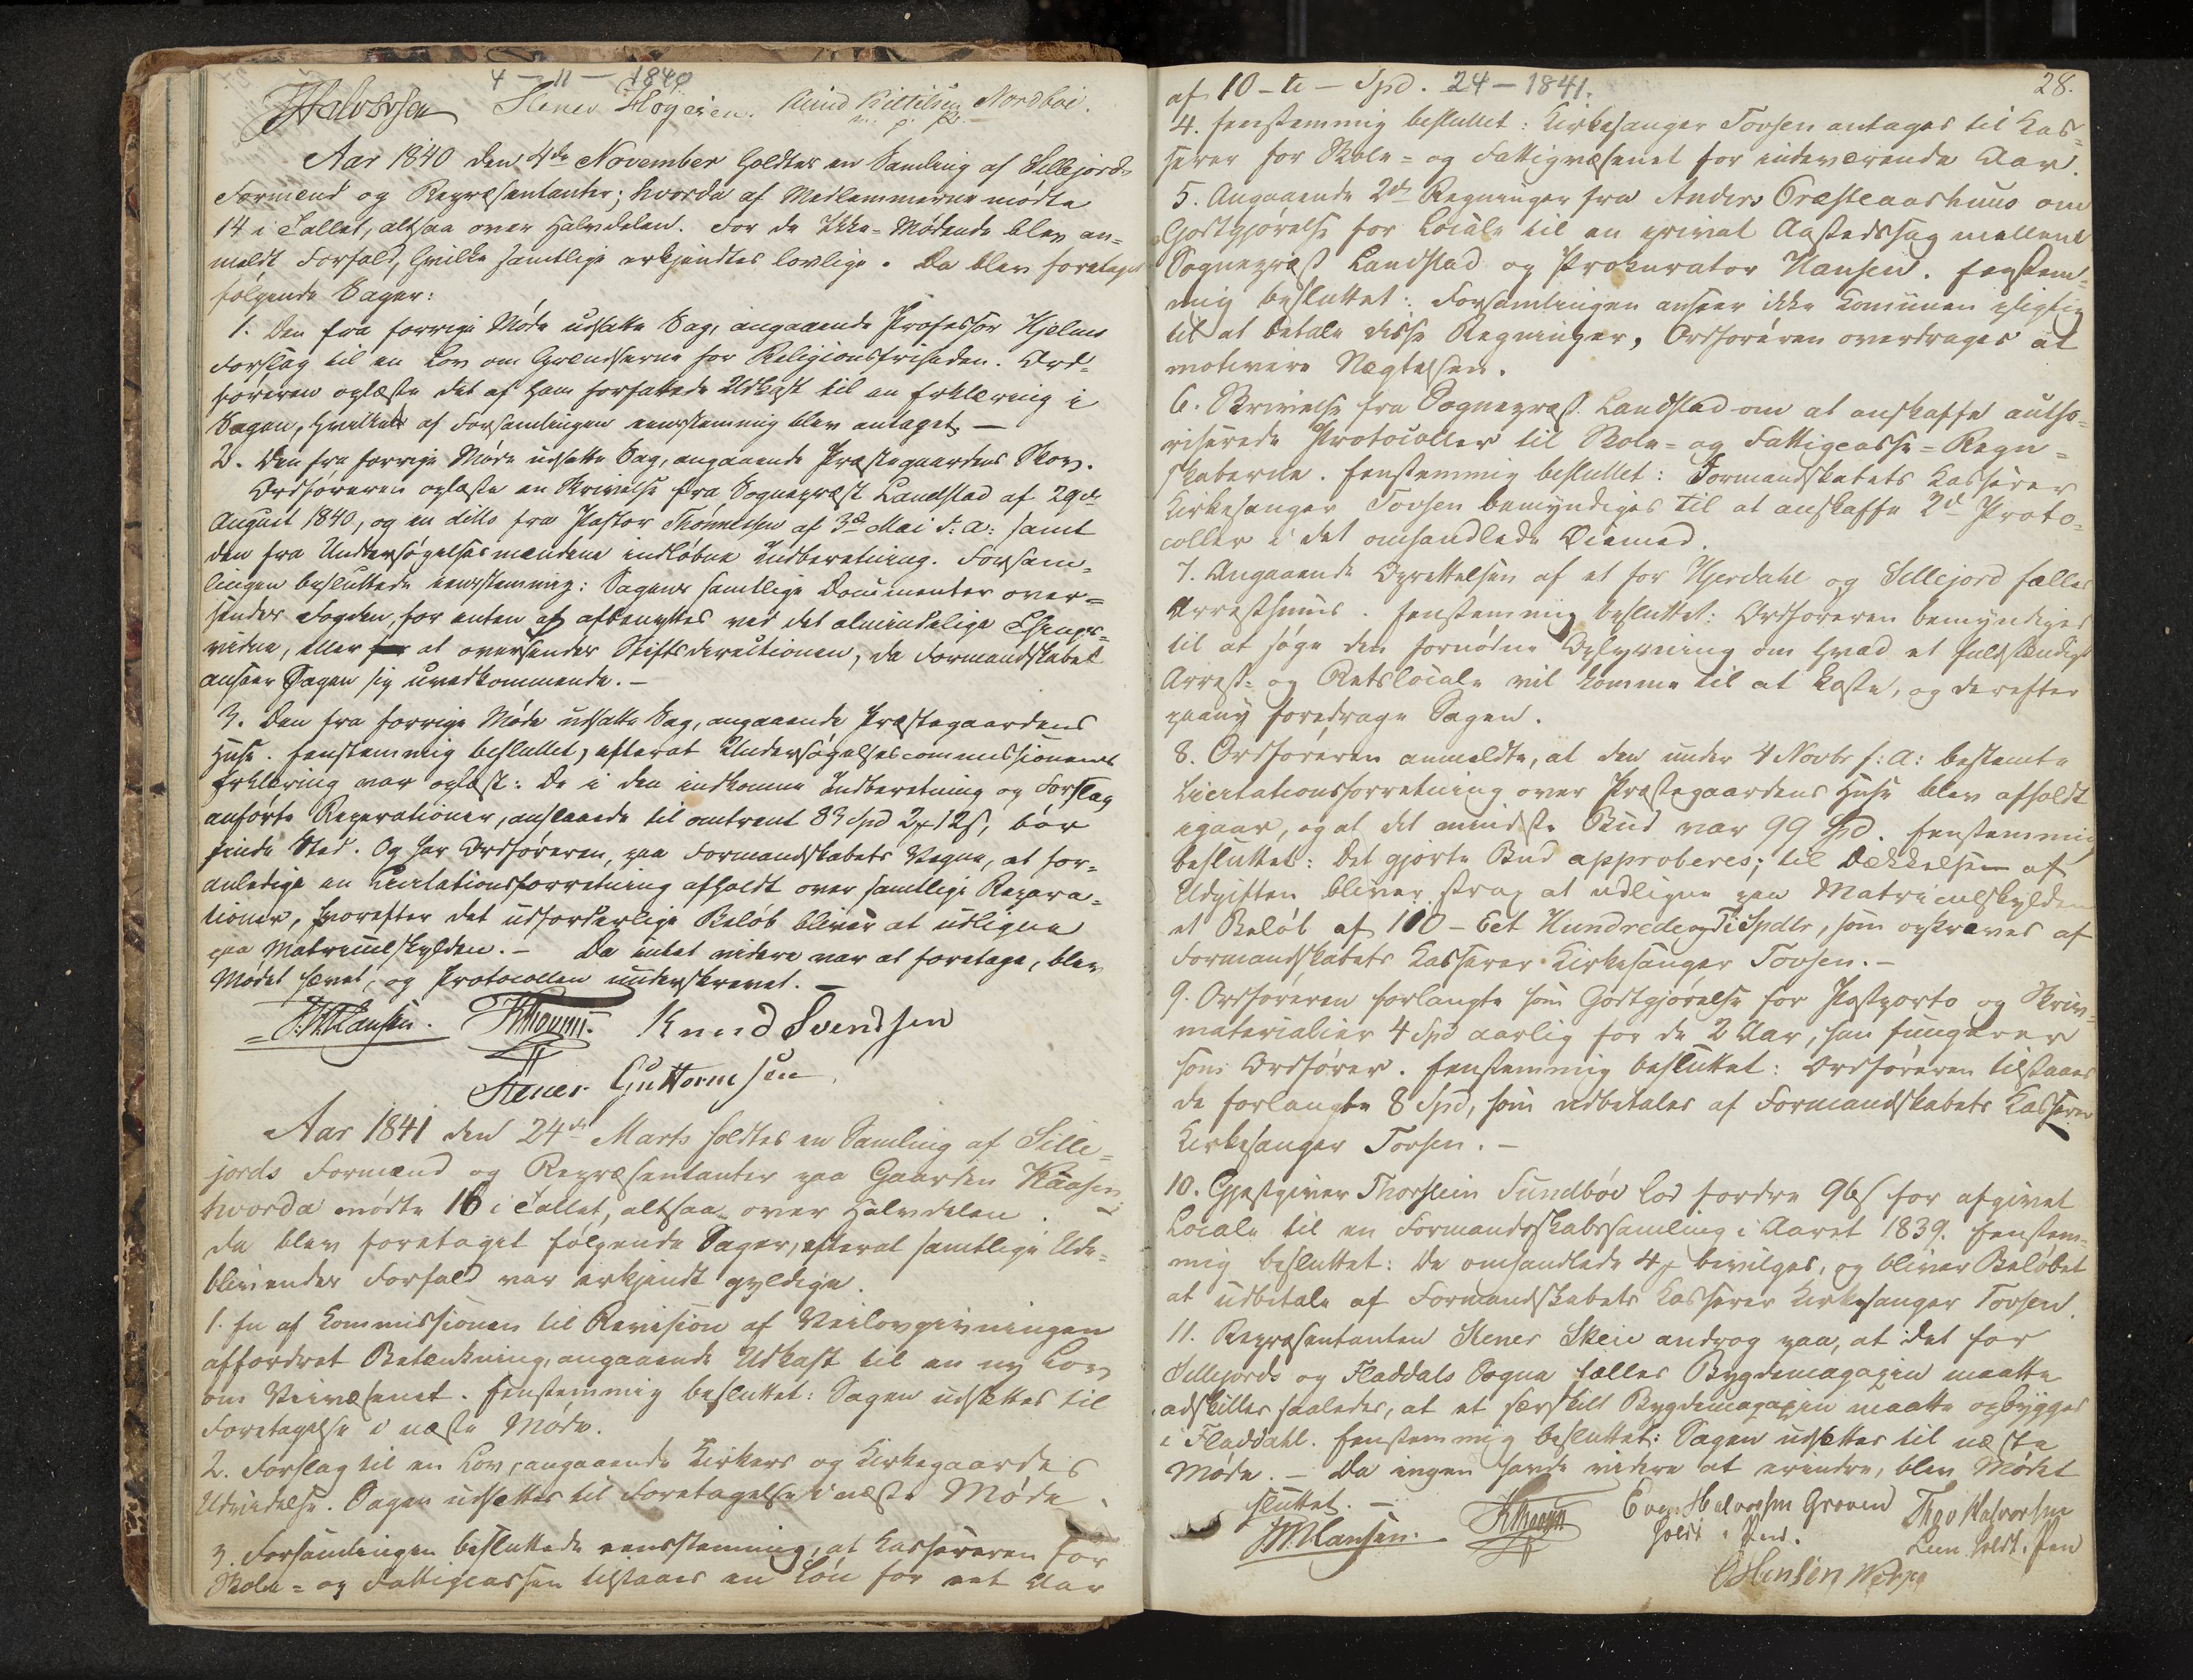 4 – 11 – 1840
Halvorsen Stener Høgeien. Amund Kittilsen Nordbøe.
m. p. P.
Aar 1840 den 4de November holdtes en Samling af Sillejords
Formænd og Repræsentanter; hvorda af Medlemmerne mødte
14 i Tallet, altsaa over Halvdelen. For de Ikke-Mødende blev an=
meldt Forfald, hvilke samtlige erkjendtes lovlige. Da blev foretaget
følgende Sager:
1. Den fra forrige Møde udsatte Sag, angaaende Professor Hjelms
Forslag til en Lov om Grændserne for Religionsfriheden. Ord=
føreren oplæste det af ham forfattede Udkast til en Erklæring i
Sagen, hvilket af Forsamlingen eenstemmig blev antaget. —
2. Den fra forrige Møde udsatte Sag, angaaende Præstegaardens Skov.
Ordføreren oplæste en Skrivelse fra Sognepræst Landstad af 29de
August 1840, og en ditto fra Pastor Thønnesen af 3die Mai d: A: samt
den fra Undersøgelsesmændene indløbne Indberetning. Forsam=
lingen besluttede eenstemmig: Sagens samtlige Documenter over=
sendes Fogden, for enten at afbenyttes ved det almindelige Things=
vidne, eller at oversendes Stiftsdirectionen, da Formandskabet
anseer Sagen sig uvedkommende. —
3. Den fra forrige Møde udsatte Sag, angaaende Præstegaardens
Huse. Eenstemmig besluttet, efterat Undersøgelsescommissionens
Erklæring var oplæst: De i den indkomne Indberetning og Forslag
anførte Reparationer, anslaaede til omtrent 83 Spd 2 # 12 s, bør
finde Sted. Og har Ordføreren, paa Formandskabets Vegne, at for=
anledige en Licitationsforretning afholdt over samtlige Repara=
tioner, hvorefter det udfordrerlige Beløb bliver at udligne
paa Matriculskylden. — Da intet videre var at foretage, blev
Mødet hævet, og Protocollen underskrevet. —
J. M. Hansen. Knud Svendsen
Stener Guttormsen.
Aar 1841 den 24de Marts holdtes en Samling af Sille=
jords Formænd og Repræsentanter paa Gaarden Kaasen
hvorda mødte 16 i Tallet, altsaa over Halvdelen.
Da blev foretaget følgende Sager, efterat samtlige Ude=
blivendes Forfald var erkjendt gyldige.
1. En af Kommissionen til Revision af Veilovgivningen
affordret Betænkning, angaaende Udkast til en ny Lov
om Veivæsenet. Eenstemmig besluttet: Sagen udsættes til
Foretagelse i næste Møde.
2. Forslag til en Lov, angaaende Kirkers og Kirkegaardes
Udvidelse. Sagen udsættes til Foretagelse i næste Møde.
3. Forsamlingen besluttede eenstemmig, at Kassereren for
Skole= og Fattigcassen tilstaaes en Løn for eet Aar
28.
af 10 – ti – Spd. 24 – 1841.
4. Eenstemmig besluttet: Kirkesanger Tovsen antages til Kas=
serer for Skole= og Fattigvæsenet for indeværende Aar.
5. Angaaende 2de Regninger fra Anders Præsteaarhuus om
Godtgjørelse for Locale til en privat Aastedssag mellem
Sognepræst Landstad og Prokurator Hansen. Eenstem=
mig besluttet: Forsamlingen anseer ikke Komunen pligtig
til at betale disse Regninger, Ordføreren overdrages at
motivere Nægtelsen.
6. Skrivelse fra Sognepræst Landstad om at anskaffe autho=
riserede Protocoller til Skole= og Fattigcasse=Regn=
skaberne. Eenstemmig besluttet: Formandskabets Kasserer
Kirkesanger Tovsen bemyndiges til at anskaffe 2de Proto=
coller i det omhandlede Øiemed.
7. Angaaende Oprettelsen af et for Hjerdahl og Sillejord fælles
Arresthuus. Eenstemmig besluttet: Ordføreren bemyndiges
til at søge den fornødne Oplysning om hvad et fuldstændigt
Arrest= og Retslocale vil komme til at koste, og derefter
paany foredrage Sagen.
8. Ordføreren anmeldte, at den under 4 Novbr f: A: bestemte
Licitationsforretning over Præstegaardens Huse blev afholdt
igaar, og at det mindste Bud var 99 Spd. Eenstemmig
besluttet: Det gjorte Bud approberes; til Dækkelsen af
Udgiften bliver strax at udligne paa Matriculskylden
et Beløb af 110 – Eet Hundrede og Ti Spdlr, som opkræves af
Formandskabets Kasserer Kirkesanger Tovsen. —
9. Ordføreren forlangte som Godtgjørelse for Postporto og Skriv=
materialier 4 Spd aarlig for de 2 Aar, han fungerer
som Ordfører. Eenstemmig besluttet: Ordføreren tilstaaes
de forlangte 8 Spd, som udbetales af Formandskabets Kasserer
Kirkesanger Tovsen. —
10. Gjestgiver Thorstein Sundbøe lod fordre 96 s for afgivet
Locale til en Formandskabssamling i Aaret 1839. Eenstem=
mig besluttet: De omhandlede 4 # bevilges, og bliver Beløbet
at udbetale af Formandskabets Kasserer Kirkesanger Tovsen.
11. Repræsentanten Stener Skeie androg paa, at det for
Sillejords og Fladdals Sogne fælles Bygdemagazin maatte
adskilles saaledes, at et særskilt Bygdemagazin maatte opbygges
i Fladdahl. Eenstemmig besluttet: Sagen udsættes til næste
Møde. — Da ingen havde videre at erindre, blev Mødet
sluttet. —
J. M. Hansen. Even Halvorsen Groven Thov Halvorsen
holdt i Pen. Lien holdt i Pen